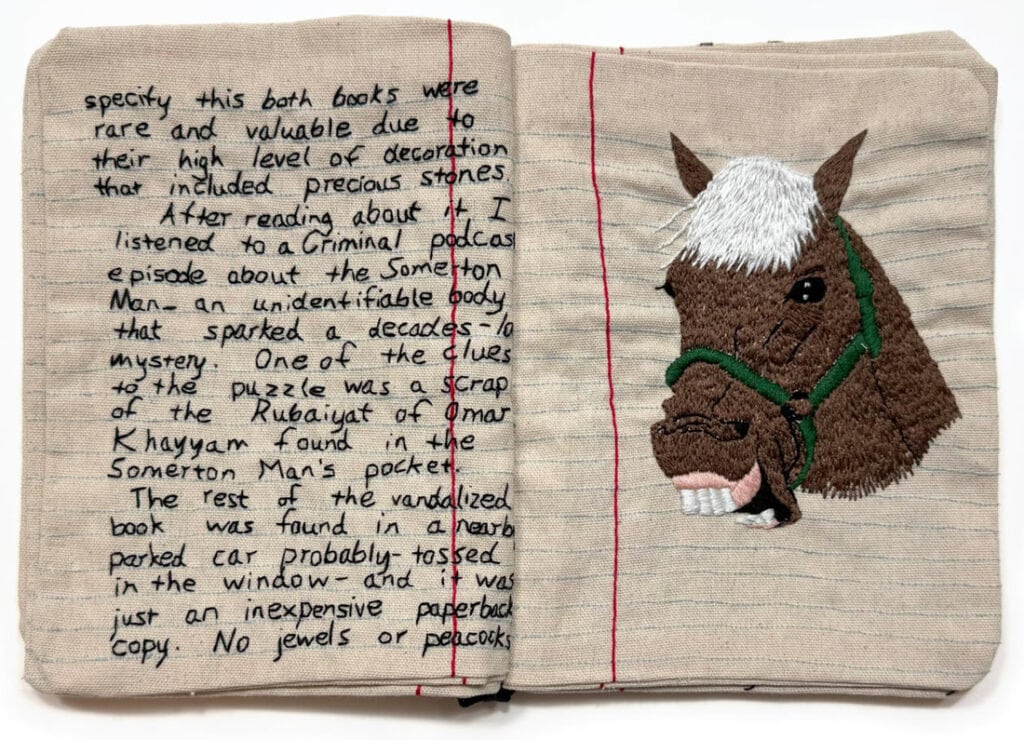 specify this both books were
rare and valuable due to
their high level of decoration
that included precious stones.
After reading about it I
listened to a Criminal podcas
episode about the Somerton
Man- an unidentifiable body
that sparked a decades-lo
mystery. One of the clues
to the puzzle was a scrap
of the Rubaiyat of Omar
Khayyam found in the
Somerton Man's pocket.
The rest of the vandalized
book was found in a nearb
parked car probably-tossed
in the window- and it was
just an inexpensive paperback
copy. No jewels or peacocks